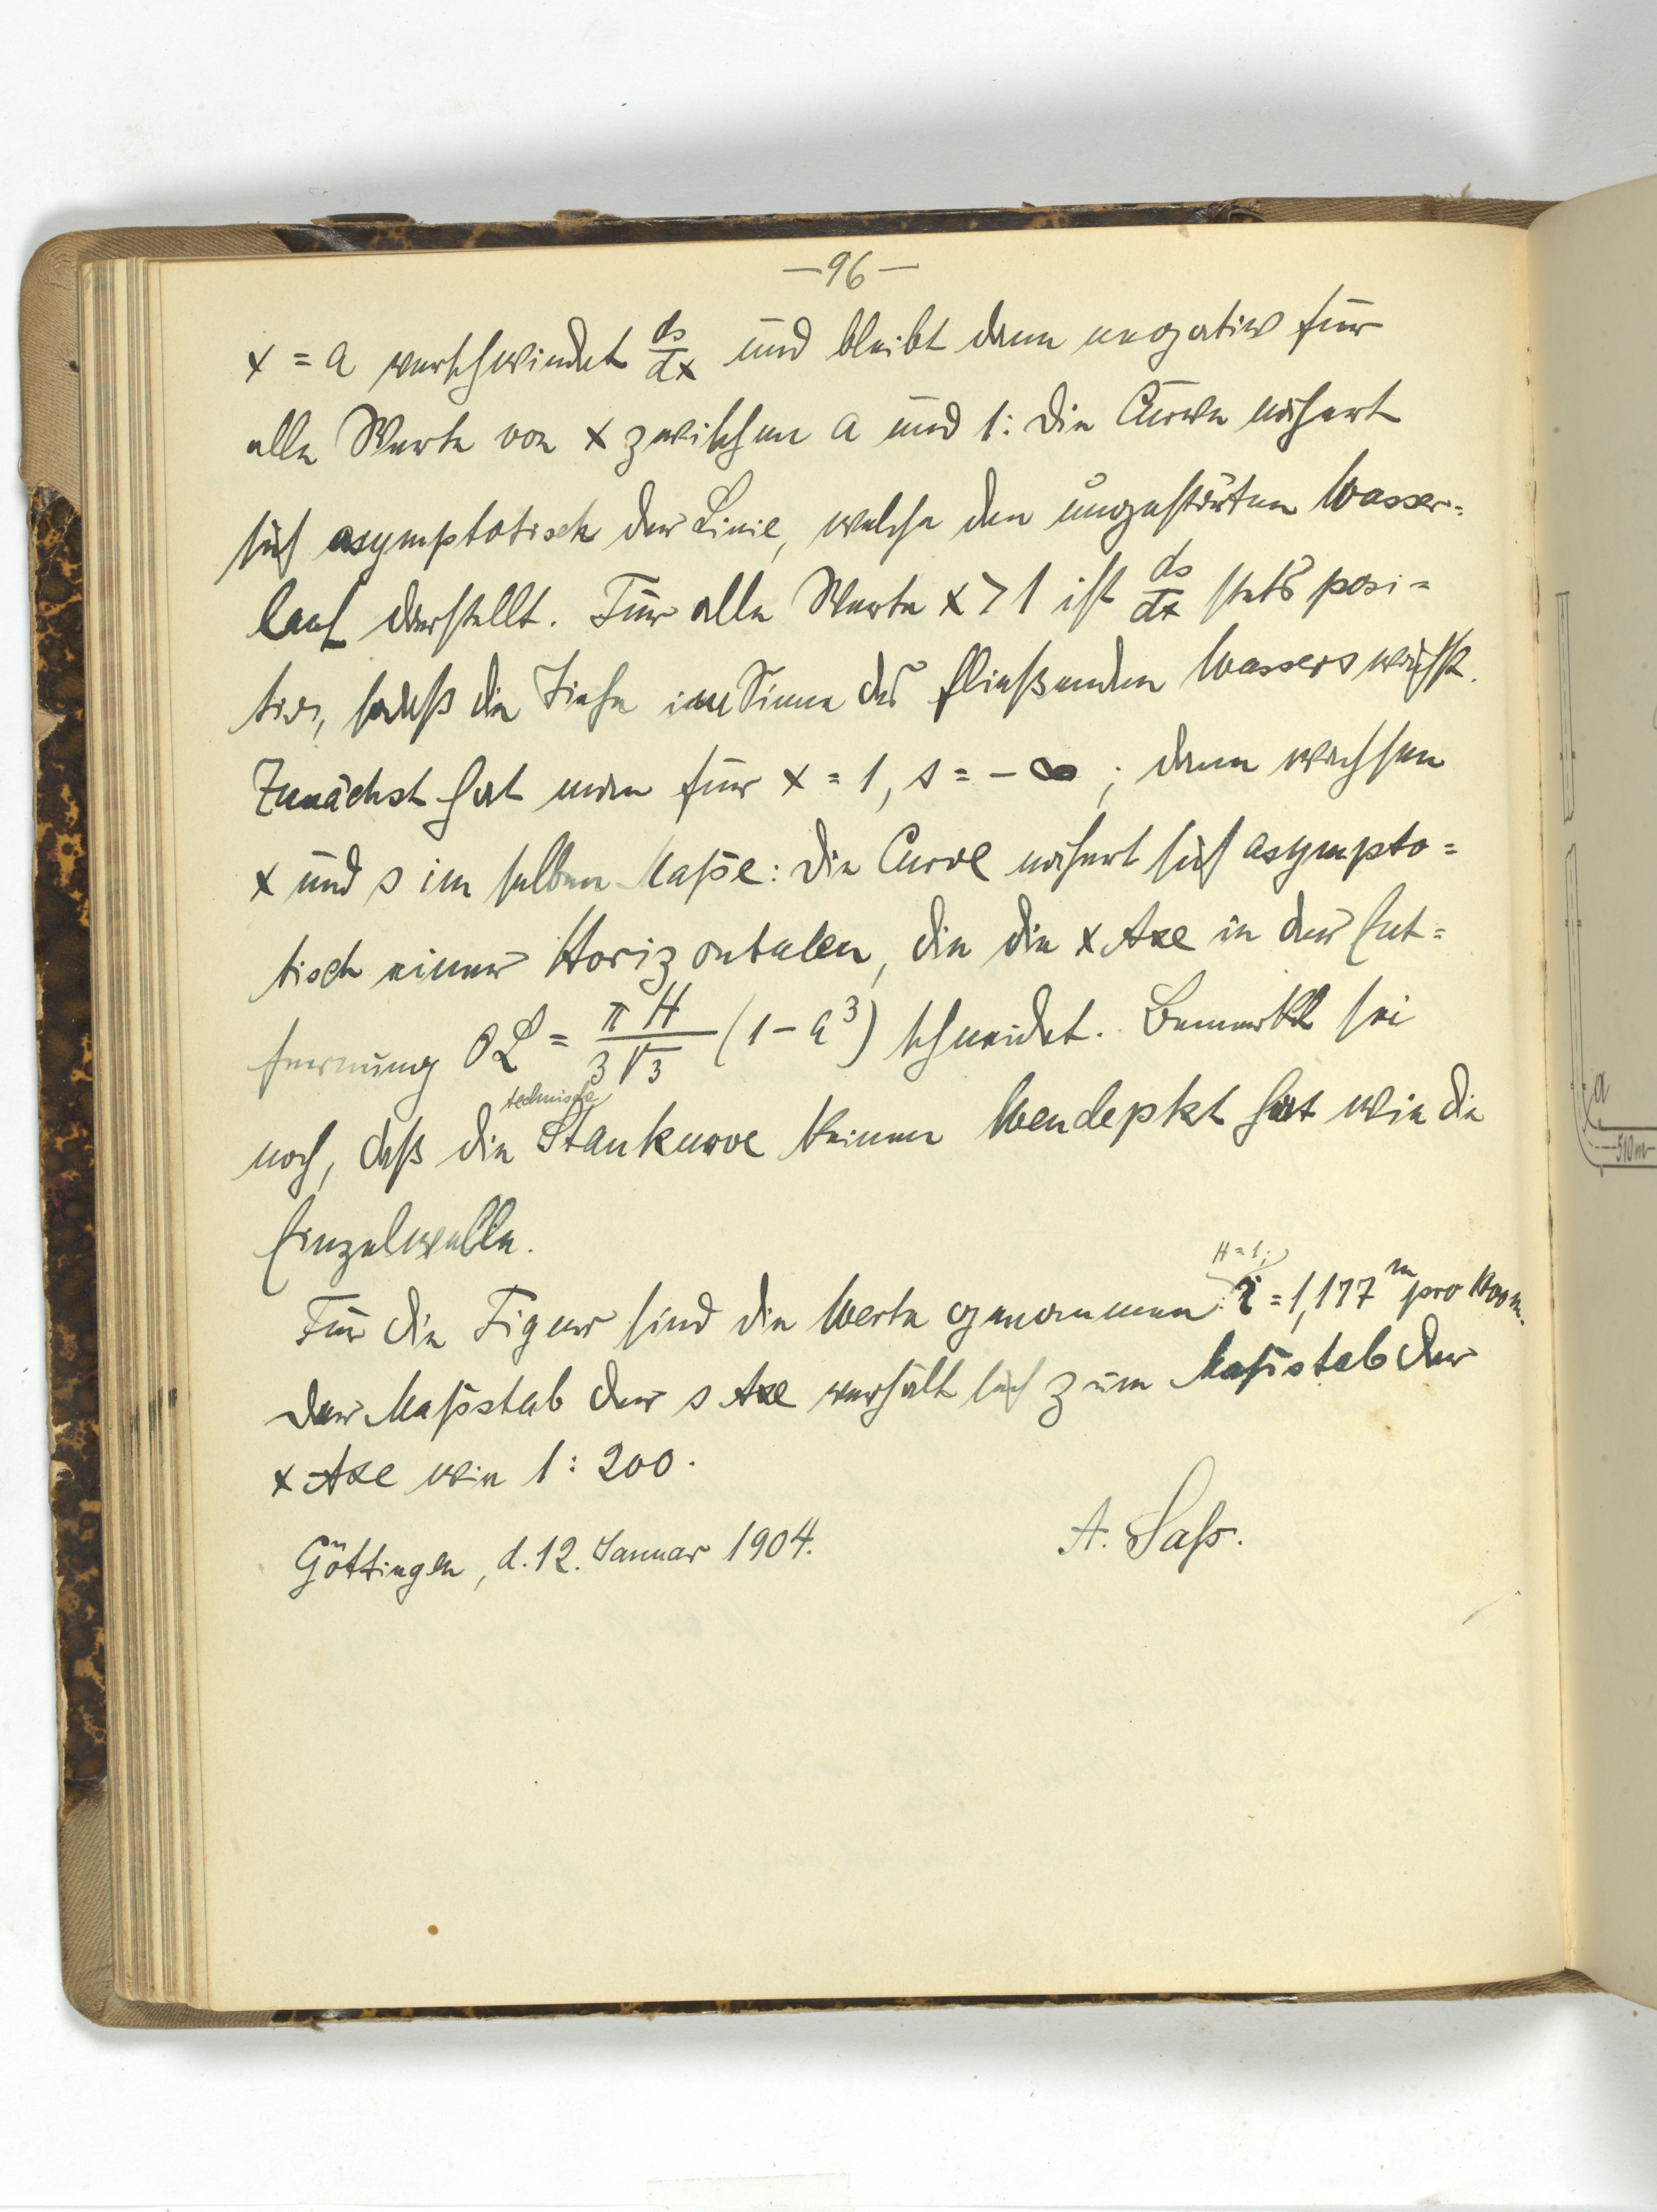 —96—
x = a verschwindet ds/dx und bleibt dann negativ für
alle Werte von x zwischen a und 1: die Curve nähert
sich asymptotisch der Linie, welche den ungestörten Wasser=
lauf darstellt. Für alle Werte x > 1 ist ds/dx stets posi=
tiv, sodaß die Tiefe im Sinne des fließenden Wassers wächst.
Zunächst hat man für x = 1, s = - ∞; dann wachsen
x und s im selben Maße: die Curve nähert sich asympto=
tisch einer Horizontalen, die die x Axe in der Ent=
fernung OL = πH/3√3 (1 - a³) schneidet. Bemerkt sei
technische
noch, daß die Staukurve keinen Wendepkt hat wie die
Einzelwelle.
H = 1;
Für die Figur sind die Werte genommen: i = 1,177 m pro 1000 m.
Der Maßstab der s Axe verhält sich zum Maßstab der
x Axe wie 1 : 200.
Göttingen, d. 12. Januar 1904. A. Saß.
a
510m